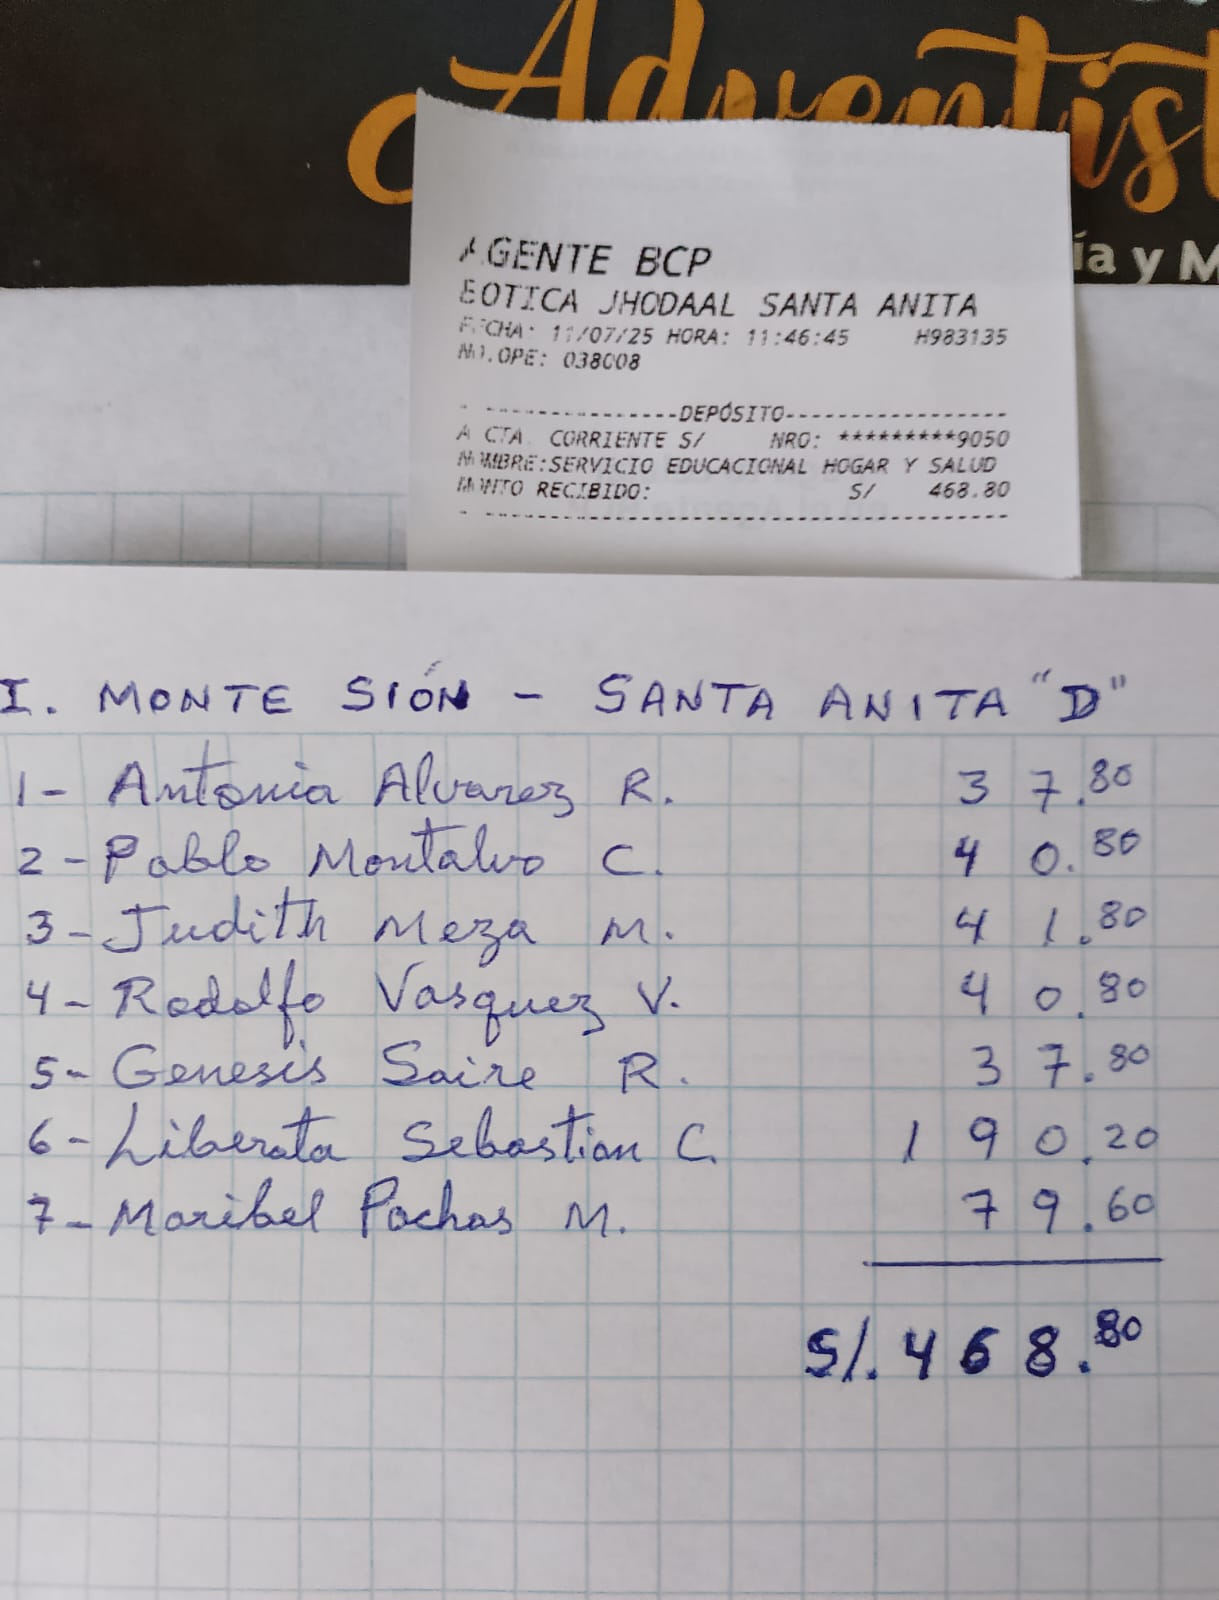 Adventist
ía y M
AGENTE BCP
BOTICA JHODAAL SANTA ANITA
FECHA: 11/07/25 HORA: 11:46:45 H983135
NO.OPE: 038008
DEPÓSITO
A CTA. CORRIENTE S/ NRO: *********9050
NOMBRE:SERVICIO EDUCACIONAL HOGAR Y SALUD
MONTO RECIBIDO: S/ 468.80
I. MONTE SIÓN - SANTA ANITA "D"
1- Antonia Alvarez R. 37.80
2- Pablo Montalvo C. 40.80
3- Judith Meza M. 41.80
4- Rodolfo Vasquez V. 40.80
5- Genesis Saire R. 37.80
6- Liberata Sebastian C. 190.20
7- Maribel Pachas M. 79.60
S/. 468.80